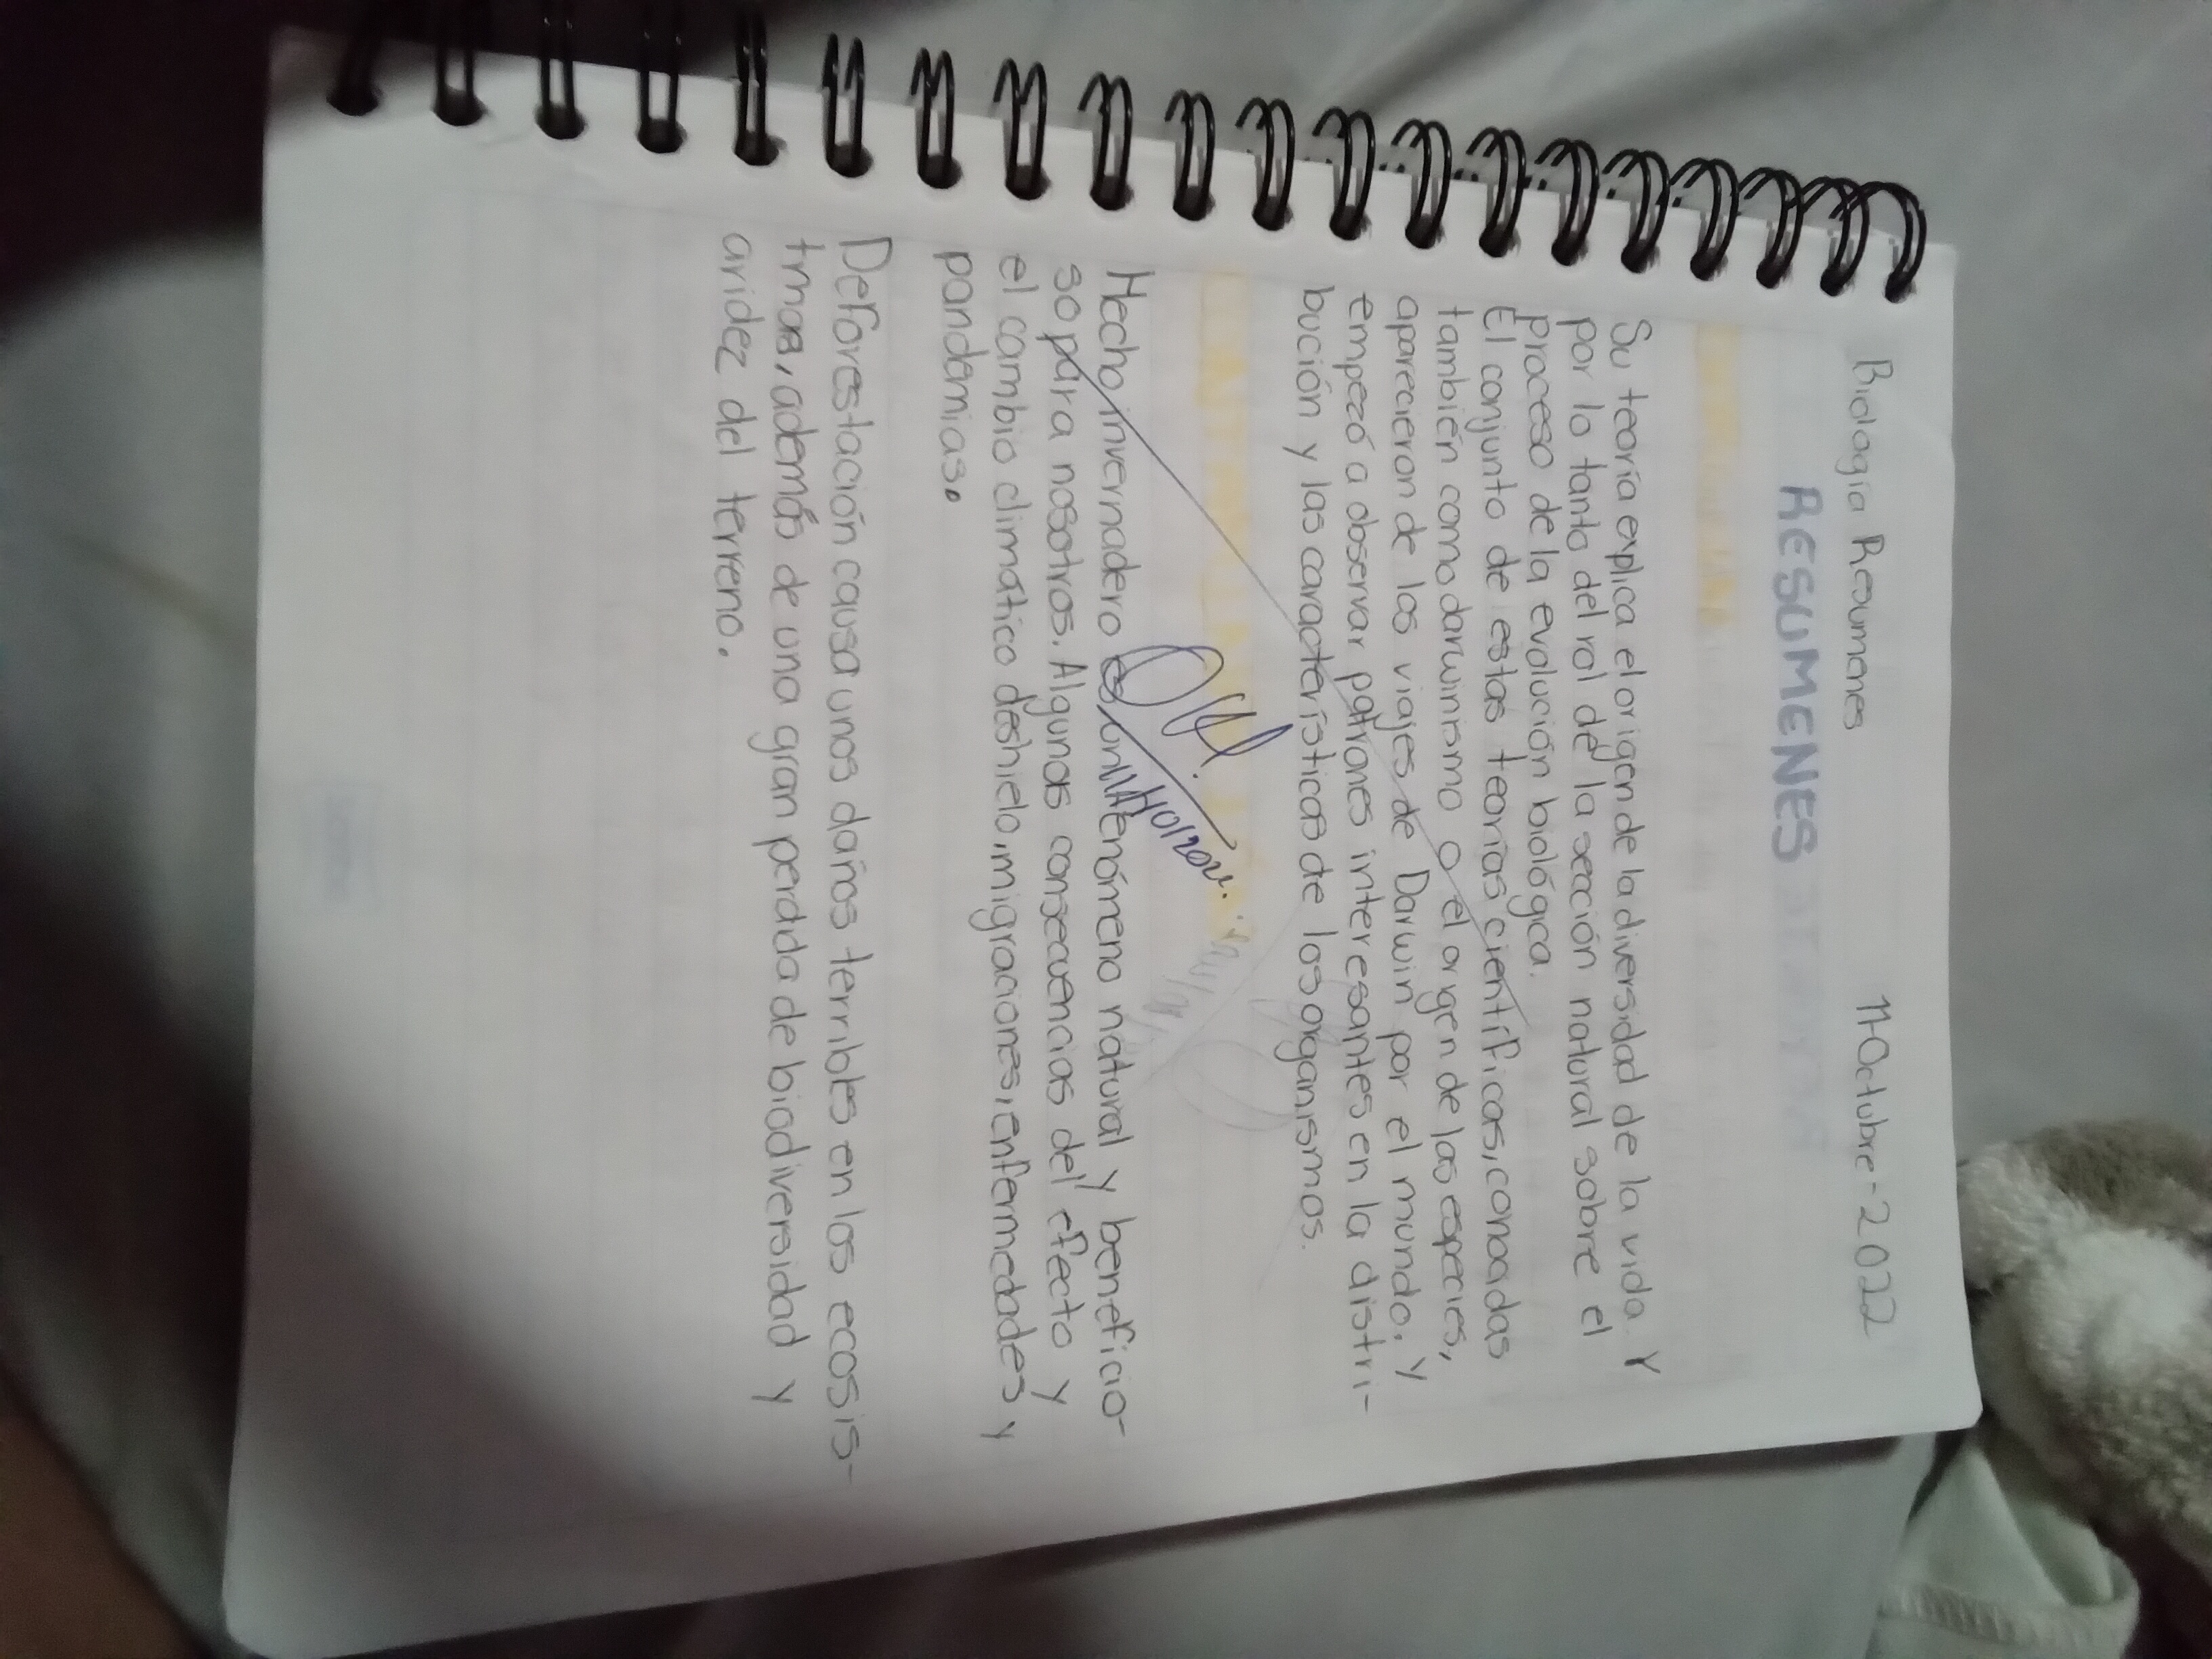 Biología Resumenes 11-Octubre-2022
RESUMENES
Su teoría explica el origen de la diversidad de la vida. Y
por lo tanto del rol de la sección natural sobre el
proceso de la evolución biológica.
El conjunto de estas teorías científicas, conoadas
también como darwinismo o el origen de las especies,
aparecieron de los viajes de Darwin por el mundo, y
empezó a observar patrones interesantes en la distri-
bución y las características de los organismos.
Hecho invernadero es un fenómeno natural y beneficio-
so para nosotros. Algunas consecuencias del efecto y
el cambio climático deshielo, migraciones, enfermedades y
pandemias.
Deforestación causa unos daños terribles en los ecosis-
tmas, además de una gran perdida de biodiversidad y
aridez del terreno.